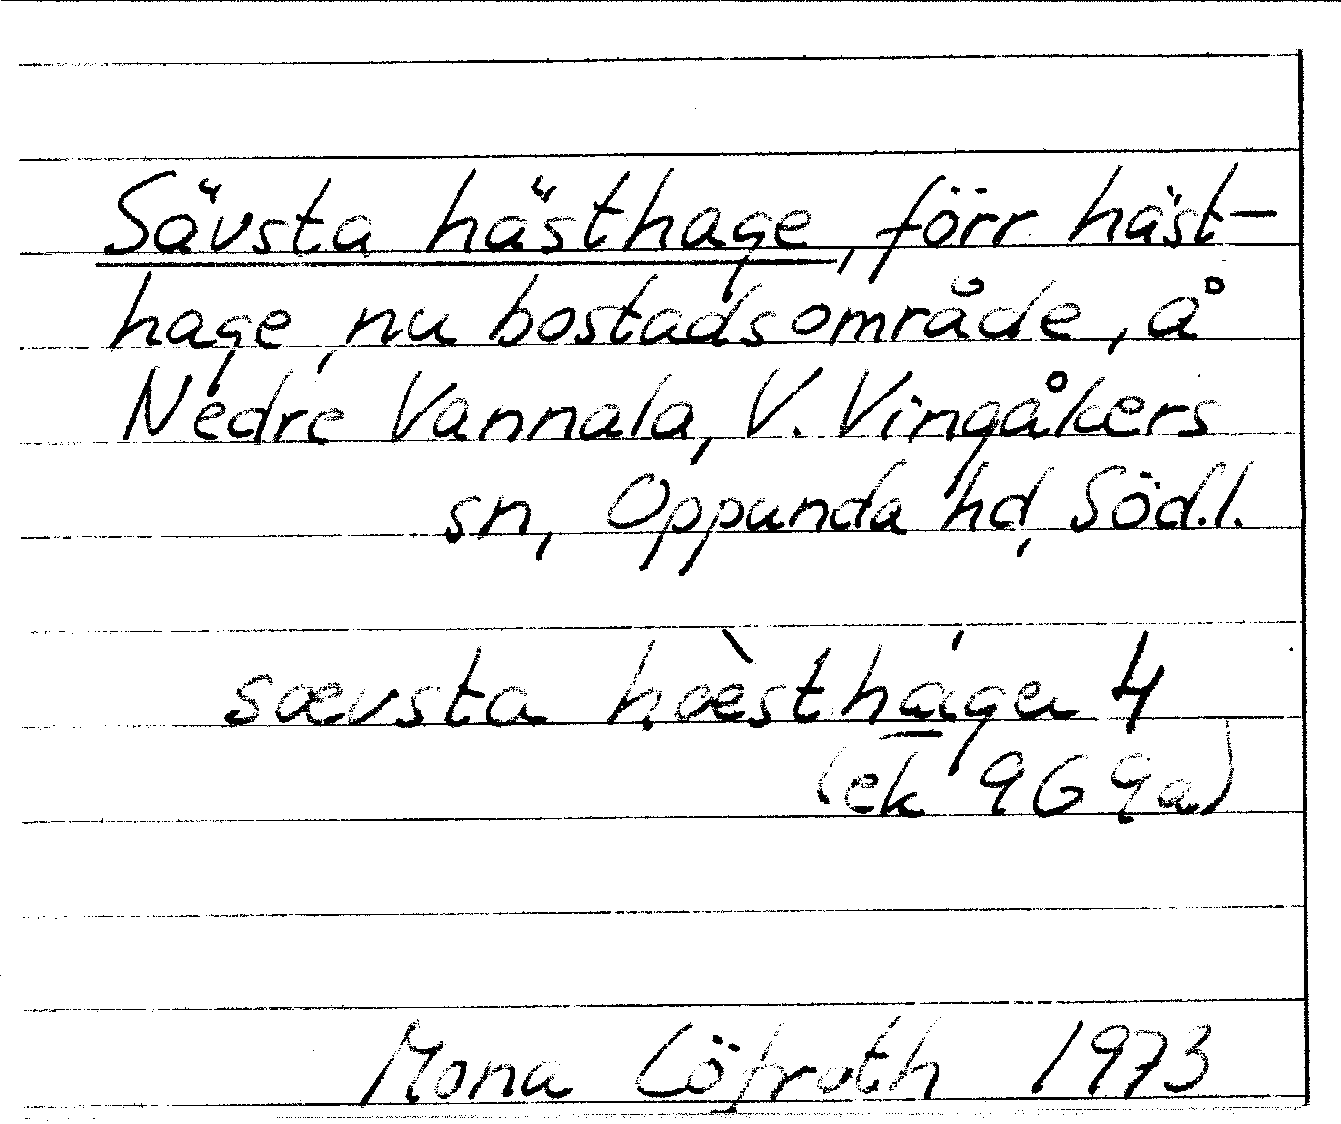 Sävsta hästhage, förr häst-
hage, nu bostadsområde, å
Nedre Vannala, V. Vingåkers
sn, Oppunda hd, Söd.l.
sævsta hæ̀sthágen 4
(ek 9G 9a)
Mona Löfroth 1973